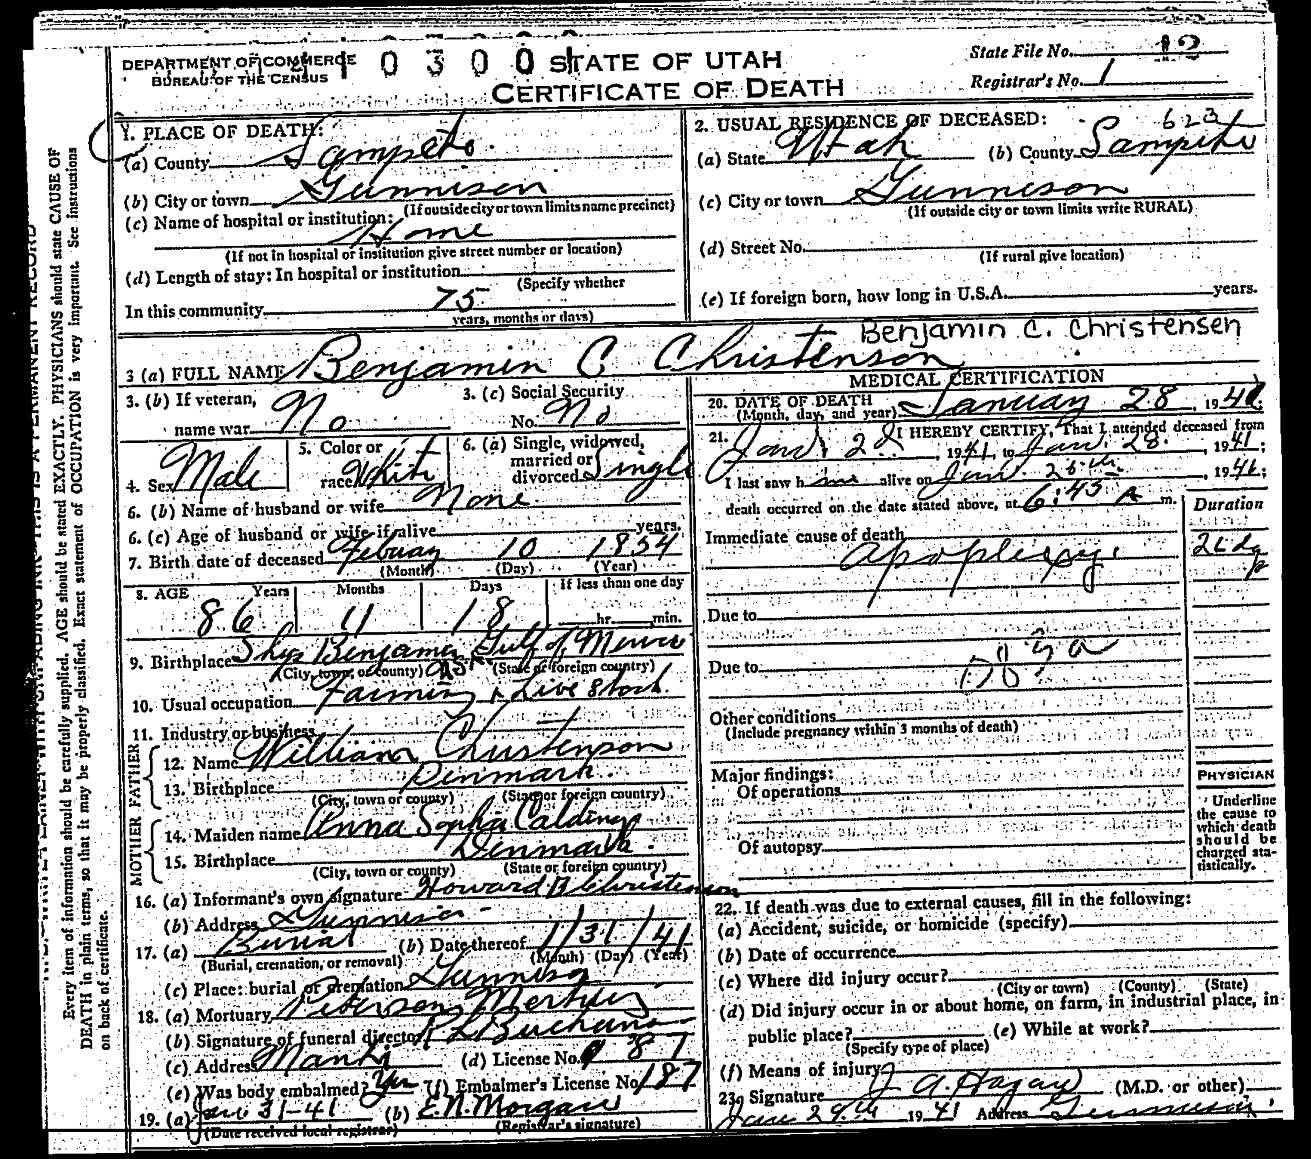 DEPARTMENT OF COMMERCE
BUREAU OF THE CENSUS
10300
STATE OF UTAH
CERTIFICATE OF DEATH
State File No. 12
Registrar's No. 1
1. PLACE OF DEATH:
(a) County Sanpete
(b) City or town Gunnison
(If outside city or town limits name precinct)
(c) Name of hospital or institution:
Home
(If not in hospital or institution give street number or location)
(d) Length of stay: In hospital or institution
(Specify whether
In this community 75
years, months or days)
2. USUAL RESIDENCE OF DECEASED: 623
(a) State Utah (b) County Sanpete
(c) City or town Gunnison
(If outside city or town limits write RURAL)
(d) Street No.
(If rural give location)
(e) If foreign born, how long in U.S.A. years.
Benjamin C. Christensen
3 (a) FULL NAME Benjamin C Christenson
3. (b) If veteran, name war No
3. (c) Social Security No. No
4. Sex Male
5. Color or race White
6. (a) Single, widowed, married or divorced Single
6. (b) Name of husband or wife None
6. (c) Age of husband or wife if alive years.
7. Birth date of deceased Febuary 10 1854
(Month) (Day) (Year)
8. AGE Years Months Days If less than one day
86 11 18 hr. min.
9. Birthplace Ship Benjamin Gulf of Mexico
(City, town, or county) (State or foreign country)
10. Usual occupation Farming & Live Stock
11. Industry or business
FATHER
12. Name William Christenson
13. Birthplace Denmark
(City, town or county) (State or foreign country)
MOTHER
14. Maiden name Anna Sopha
15. Birthplace Denmark
(City, town or county) (State or foreign country)
16. (a) Informant's own signature Howard B Christenson
(b) Address Gunnison
17. (a) Burial (b) Date thereof 1/31/41
(Burial, cremation, or removal) (Month) (Day) (Year)
(c) Place: burial or cremation Gunnison
18. (a) Mortuary Peterson Mortuary
(b) Signature of funeral director
(c) Address Manti (d) License No. 187
(e) Was body embalmed? Yes (f) Embalmer's License No. 187
19. (a) Jan 31-41 (b) E.N. Morgan
(Date received local registrar) (Registrar's signature)
MEDICAL CERTIFICATION
20. DATE OF DEATH
(Month, day, and year) January 28, 194
21. I HEREBY CERTIFY, That I attended deceased from
Jan. 2d, 1941, to Jan. 28, 1941;
I last saw him alive on Jan 28th, 1941;
death occurred on the date stated above, at 6:45 A m.
Duration
Immediate cause of death
Apoplexy.
Due to
Due to
Other conditions
(Include pregnancy within 3 months of death)
Major findings:
Of operations
Of autopsy
PHYSICIAN
Underline
the cause to
which death
should be
charged sta-
tistically.
22. If death was due to external causes, fill in the following:
(a) Accident, suicide, or homicide (specify)
(b) Date of occurrence
(c) Where did injury occur?
(City or town) (County) (State)
(d) Did injury occur in or about home, on farm, in industrial place, in
public place? (e) While at work?
(Specify type of place)
(f) Means of injury
23. Signature J A. Hagan (M.D. or other)
Jan 29th 1941 Address Gunnison
Every item of information should be carefully supplied. AGE should be stated EXACTLY. PHYSICIANS should state CAUSE OF
DEATH in plain terms, so that it may be properly classified. Exact statement of OCCUPATION is very important. See instructions
on back of certificate.